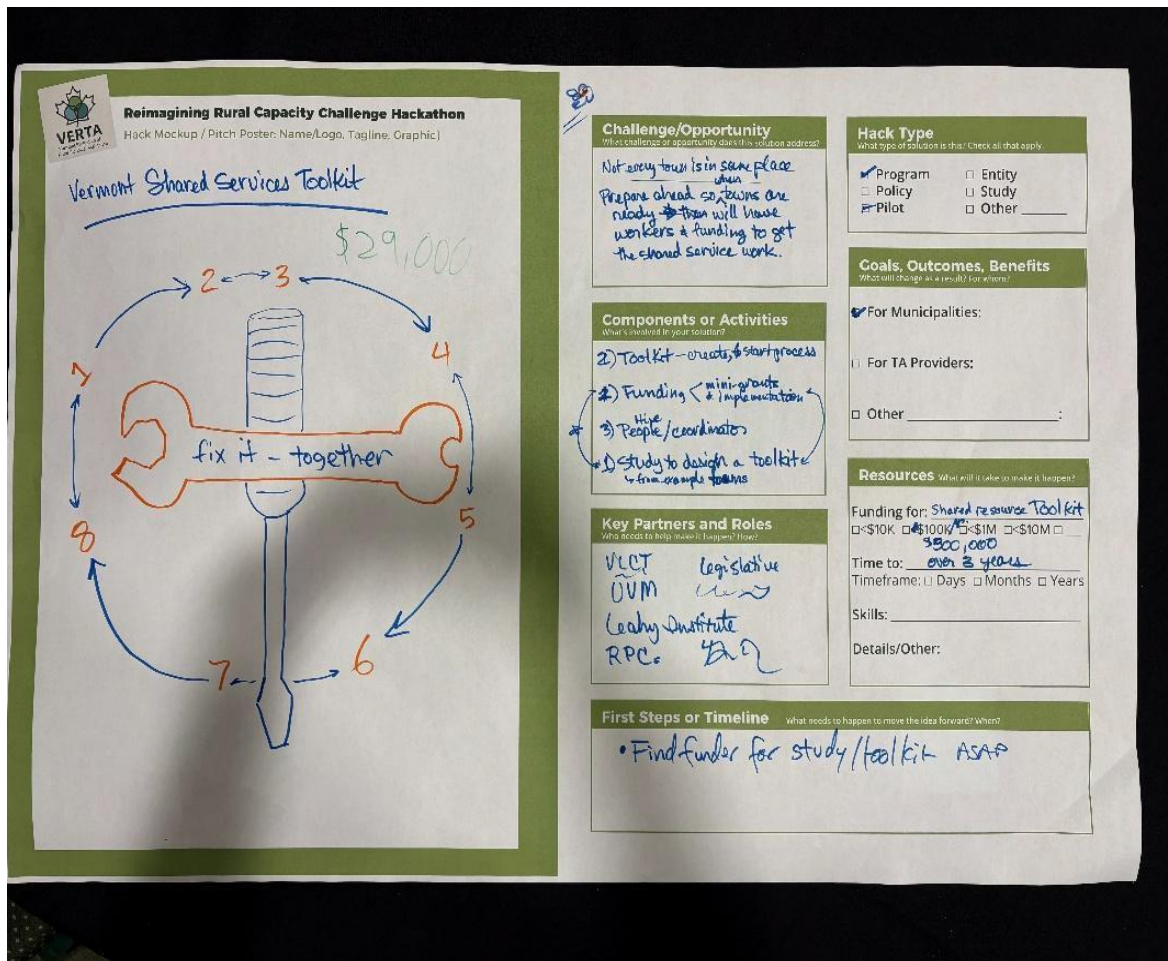 VERTA
Reimagining Rural Capacity Challenge Hackathon
Hack Mockup / Pitch Poster: Name/Logo, Tagline, Graphic)
Vermont Shared Services Toolkit
$29,000
2 3
1 4
fix it - together
8 5
7 6
Challenge/Opportunity
What challenge or opportunity does this solution address?
Not every town is in same place
when
Prepare ahead so towns are
ready then will have
workers & funding to get
the shared service work.
Components or Activities
What's involved in your solution?
2) Toolkit - create, & start process
2) Funding < mini-grants
& implementation
Hire
3) People/coordinators
1) Study to design a toolkit
↳ from example towns
Key Partners and Roles
Who needs to help make it happen? How?
VLCT Legislative
UVM
Leahy Institute
RPCs
Hack Type
What type of solution is this? Check all that apply.
✓Program □ Entity
□ Policy □ Study
Pilot □ Other
Goals, Outcomes, Benefits
What will change as a result? For whom?
✓For Municipalities:
□ For TA Providers:
□ Other :
Resources What will it take to make it happen?
Funding for: Shared resource Toolkit
□<$10K □<$100K □<$1M □<$10M □
$500,000
Time to: over 3 years
Timeframe: □ Days □ Months □ Years
Skills:
Details/Other:
First Steps or Timeline What needs to happen to move the idea forward? When?
• Find funder for study/toolkit ASAP